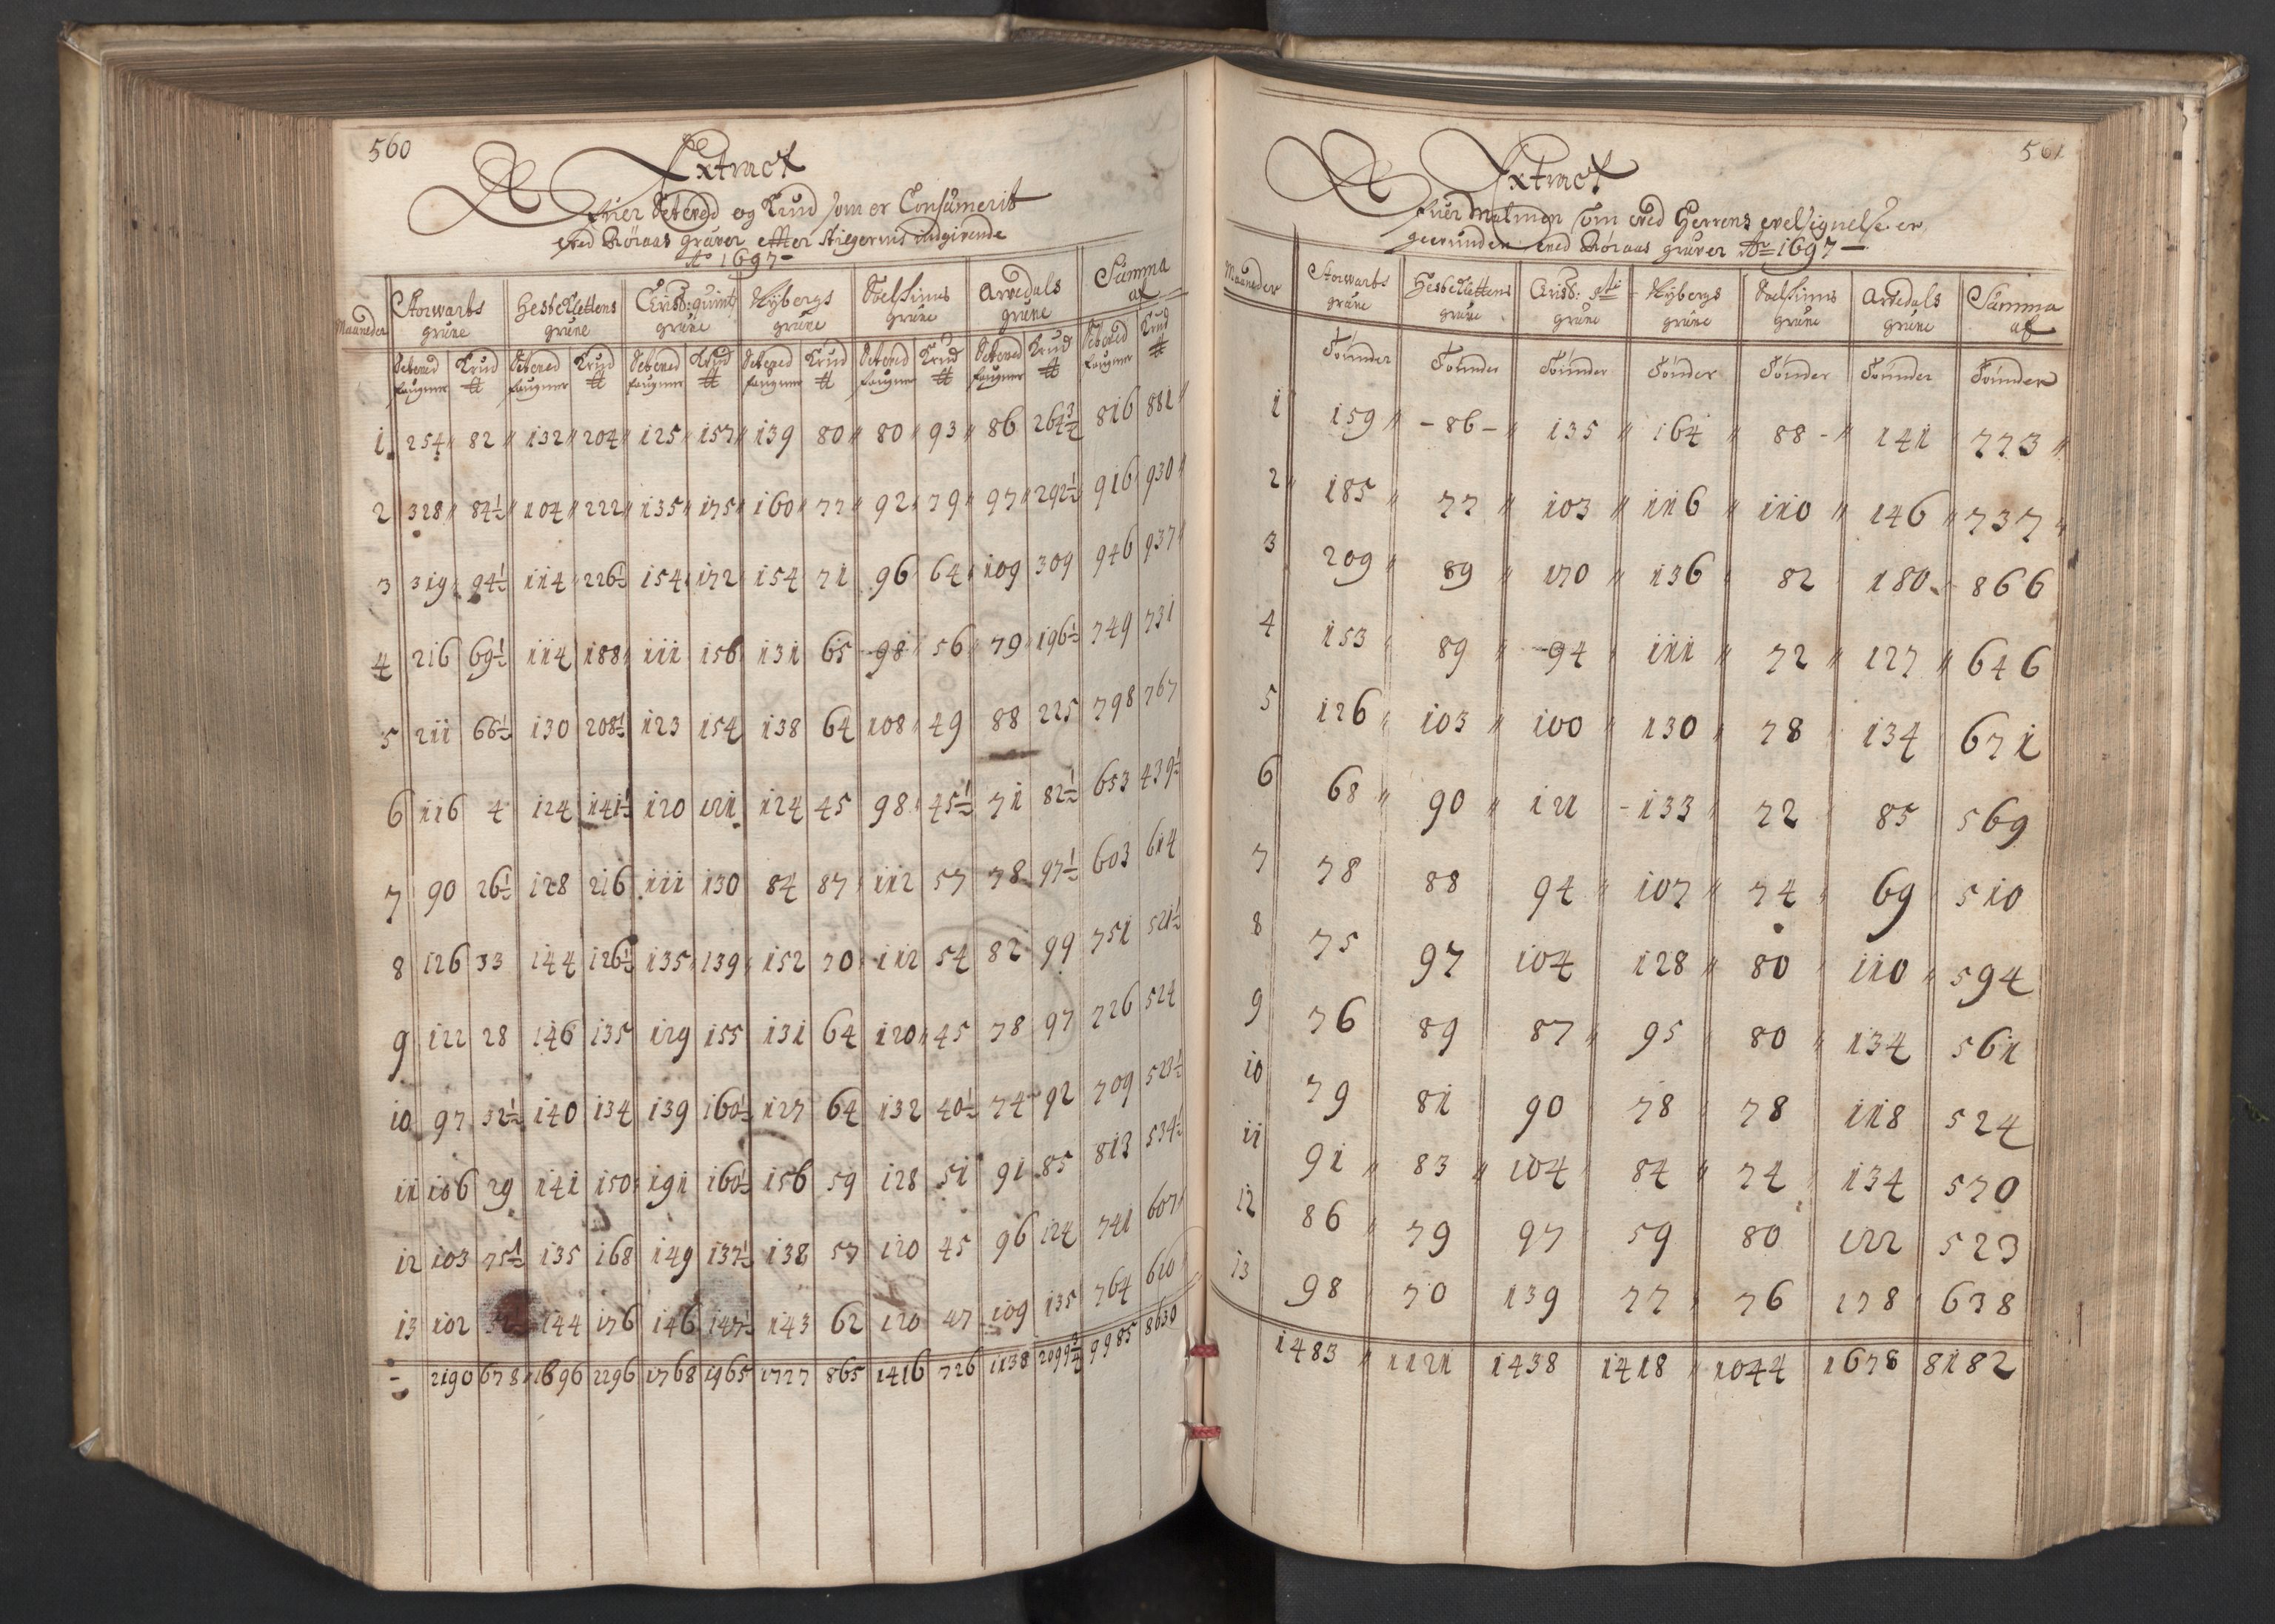 560
Extract
ofuer Setved og Krud som er Consumerit
ved Röraas gruver effter Stigernis indgivende
Ao 1697
Maaneder Storwarts grube Hestekletten­s grube Christ: quinti grube Nybergs grube Soelskinns grube Arvedals grube Summa af
Setved faugner Krud ℔ Setved faugner Krud ℔ Setved faugner Krud ℔ Setved faugner Krud ℔ Setved faugner Krud ℔ Setved faugner Krud ℔ Setved faugner Krud ℔
1 254 82 132 204 125 157 139 80 80 93 86 264¾ 816 881
2 328 84½ 104 222 135 175 160 77 92 79 97 292½ 916 930
3 319 94½ 114 226½ 154 172 154 71 96 64 109 309 946 937
4 216 69½ 114 188 111 156 131 65 98 56 79 196½ 749 731
5 211 66½ 130 208½ 123 154 138 64 108 49 88 225 798 767
6 116 4 124 141½ 120 121 124 45 98 45½ 71 82½ 653 439½
7 90 26½ 128 216 111 130 84 87 112 57 78 97½ 603 614
8 126 33 144 126½ 135 139 152 70 112 54 82 99 751 521½
9 122 28 146 135 129 155 131 64 120 45 78 97 726 524
10 97 32½ 140 134 139 160½ 127 64 132 40½ 74 92 709 523½
11 106 29 141 150 191 160½ 156 59 128 51 91 85 813 534½
12 103 75½ 135 168 149 137½ 138 57 120 45 96 124 741 607
13 102 144 176 146 147½ 143 62 120 47 109 135 764 620
2190 678 1696 2296 1768 1965 1727 865 1416 726 1138 2099¾ 9985 8630
561
Extract
ofuer Malmen som ved Herrens velsignelse er
gevunden ved Röraas gruver Ao 1697
Maaneder Storwarts grube Hestekletten­s grube Christ: 5ti grube Nybergs grube Soelskinns grube Arvedals grube Summa af
Tönder Tönder Tönder Tönder Tönder Tönder Tönder
1 159 86 135 164 88 141 773
2 185 77 103 116 110 146 737
3 209 89 170 136 82 180 866
4 153 89 94 111 72 127 646
5 126 103 100 130 78 134 671
6 68 90 121 133 72 85 569
7 78 88 94 107 74 69 510
8 75 97 104 128 80 110 594
9 76 89 87 95 80 134 561
10 79 81 90 78 78 118 524
11 91 83 104 84 74 134 570
12 86 79 97 59 80 122 523
13 98 70 139 77 76 178 638
1483 1121 1438 1418 1044 1678 8182